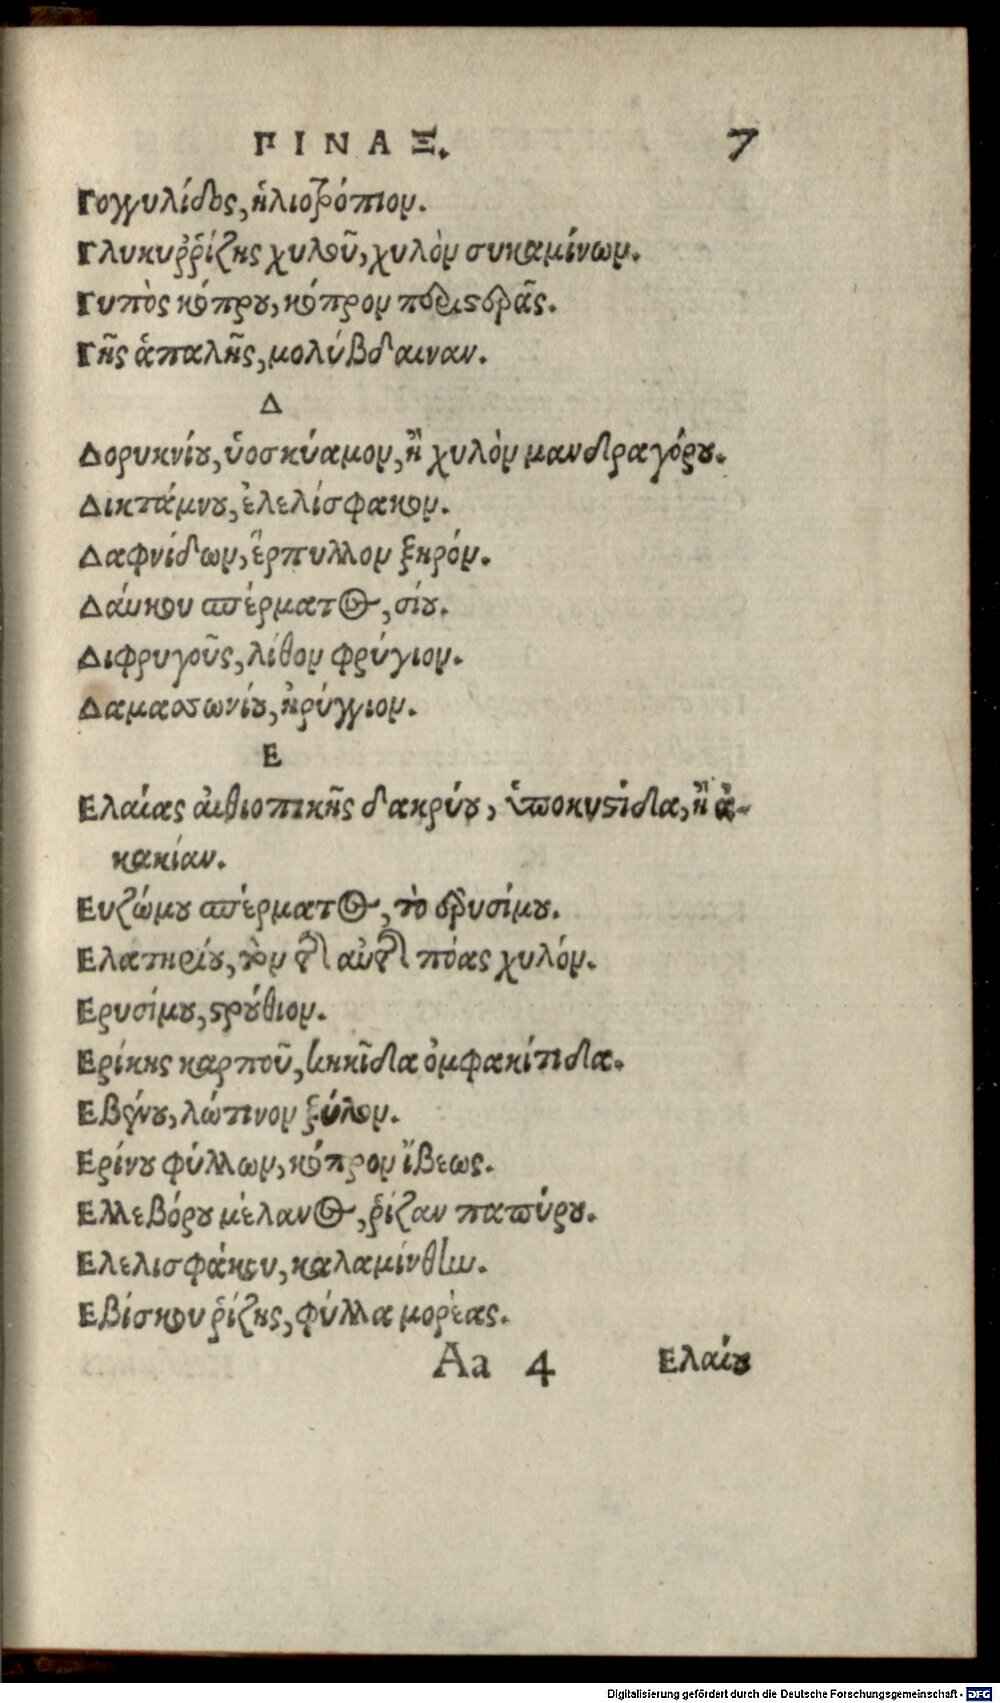 ΠΙΝΑΞ. 7
Γογγυλίδος, ἡλιοτρόπιον.
Γλυκυῤῥίζης χυλοῦ, χυλὸν συκαμίνων.
Γυπὸς κόπρου, κόπρον περιστερᾶς.
Γῆς ἁπαλῆς, μολύβδαιναν.
Δ
Δορυκνίου, ὑοσκύαμον, ἢ χυλὸν μανδραγόρου.
Δικτάμνου, ἐλελίσφακον.
Δαφνίδων, ἕρπυλλον ξηρόν.
Δάυκου σπέρματος, σίου.
Διφρυγοῦς, λίθον φρύγιον.
Δαμασσωνίου, ἠρύγγιον.
Ε
Ελαίας αἰθιοπικῆς δακρύου, ὑποκυστίδα, ἢ ἀ-
κακίαν.
Ευζώμου σπέρματος, τὸ ἐρυσίμου.
Ελατηρίου, τὸν τῆς αὐτῆς πόας χυλόν.
Ερυσίμου, στρούθιον.
Ερίκης καρποῦ, κηκῖδα ὀμφακίτιδα.
Εβένου, λώτινον ξύλον.
Ερίνου φύλλων, κόπρον ἴβεως.
Ελλεβόρου μέλανος, ῥίζαν παπύρου.
Ελελισφάκου, καλαμίνθην.
Εβίσκου ῥίζης, φύλλα μορέας.
Aa 4 Ελαίου
Digitalisierung gefördert durch die Deutsche Forschungsgemeinschaft - DFG